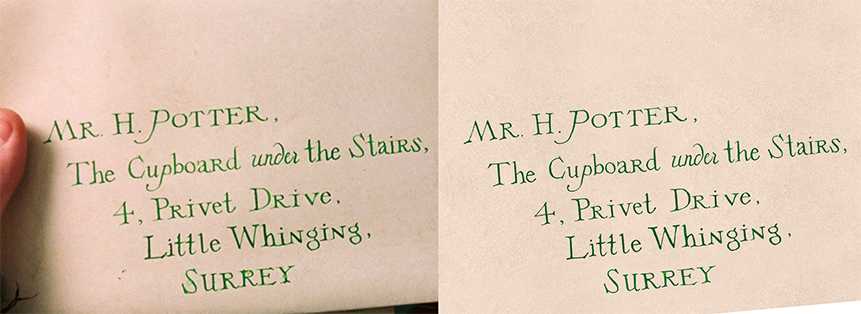 Mr. H. Potter,
The Cupboard under the Stairs,
4, Privet Drive,
Little Whinging,
Surrey
Mr. H. Potter,
The Cupboard under the Stairs,
4, Privet Drive,
Little Whinging,
Surrey